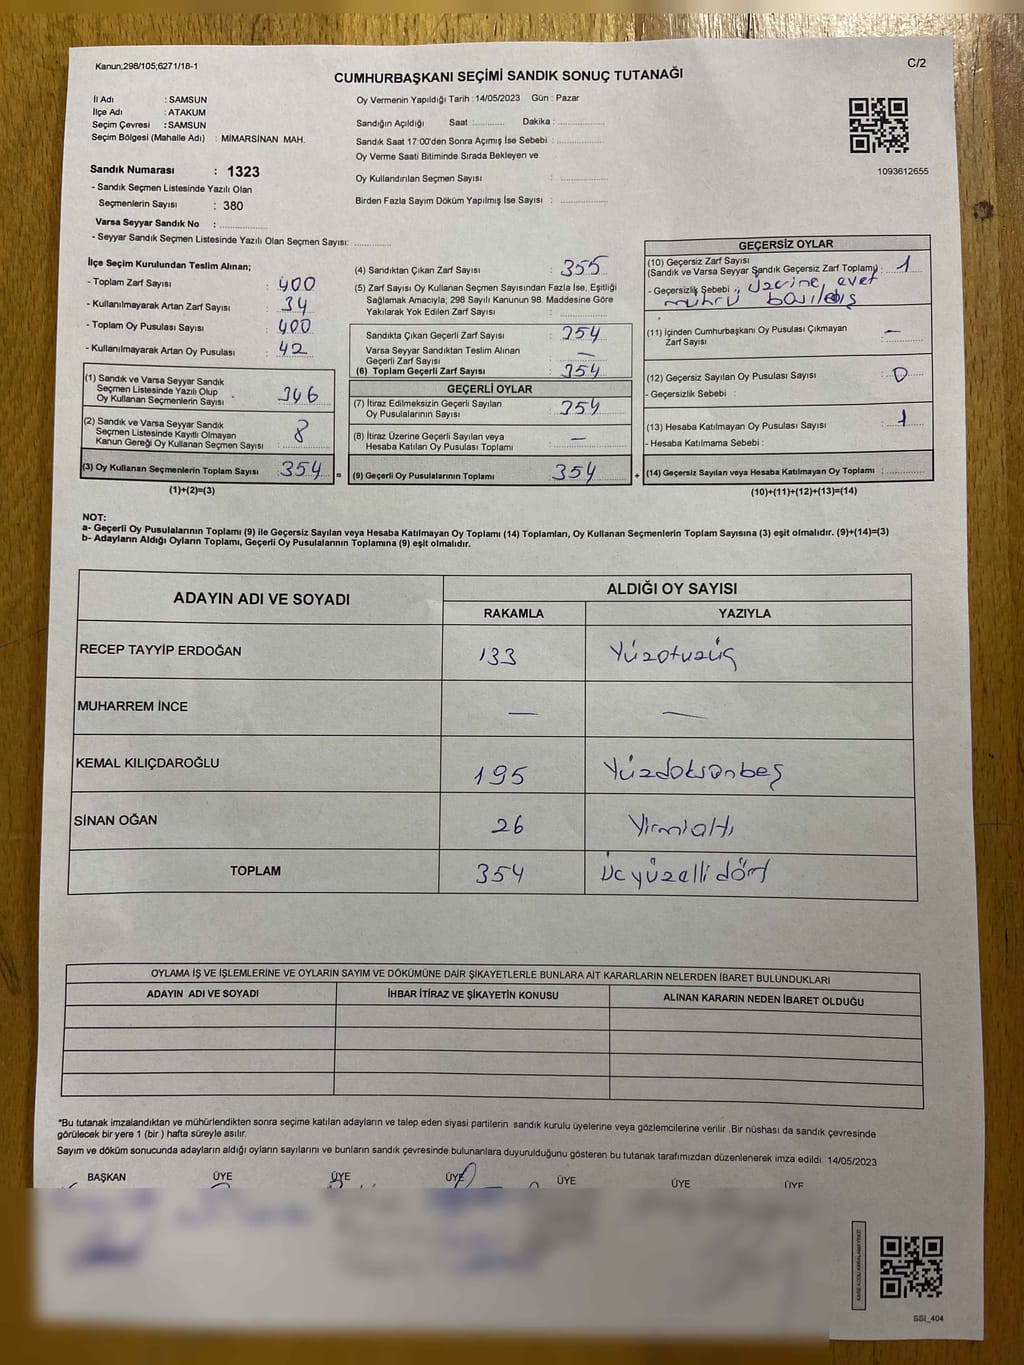 Kanun;298/105;6271/18-1
C/2
CUMHURBAŞKANI SEÇİMİ SANDIK SONUÇ TUTANAĞI
İl Adı : SAMSUN
İlçe Adı : ATAKUM
Seçim Çevresi : SAMSUN
Seçim Bölgesi (Mahalle Adı) : MİMARSİNAN MAH.
Sandık Numarası : 1323
- Sandık Seçmen Listesinde Yazılı Olan
Seçmenlerin Sayısı : 380
Varsa Seyyar Sandık No :
- Seyyar Sandık Seçmen Listesinde Yazılı Olan Seçmen Sayısı:
Oy Vermenin Yapıldığı Tarih : 14/05/2023 Gün : Pazar
Sandığın Açıldığı Saat : Dakika :
Sandık Saat 17:00'den Sonra Açımış İse Sebebi :
Oy Verme Saati Bitiminde Sırada Bekleyen ve
Oy Kullandırılan Seçmen Sayısı :
Birden Fazla Sayım Döküm Yapılmış İse Sayısı :
1093612655
İlçe Seçim Kurulundan Teslim Alınan;
- Toplam Zarf Sayısı : 400
- Kullanılmayarak Artan Zarf Sayısı : 34
- Toplam Oy Pusulası Sayısı : 400
- Kullanılmayarak Artan Oy Pusulası : 42
(1) Sandık ve Varsa Seyyar Sandık
Seçmen Listesinde Yazılı Olup
Oy Kullanan Seçmenlerin Sayısı : 346
(2) Sandık ve Varsa Seyyar Sandık
Seçmen Listesinde Kayıtlı Olmayan
Kanun Gereği Oy Kullanan Seçmen Sayısı : 8
(3) Oy Kullanan Seçmenlerin Toplam Sayısı : 354 =
(1)+(2)=(3)
(4) Sandıktan Çıkan Zarf Sayısı : 355
(5) Zarf Sayısı Oy Kullanan Seçmen Sayısından Fazla İse, Eşitliği
Sağlamak Amacıyla; 298 Sayılı Kanunun 98. Maddesine Göre
Yakılarak Yok Edilen Zarf Sayısı :
Sandıkta Çıkan Geçerli Zarf Sayısı : 354
Varsa Seyyar Sandıktan Teslim Alınan
Geçerli Zarf Sayısı : —
(6) Toplam Geçerli Zarf Sayısı : 354
GEÇERLİ OYLAR
(7) İtiraz Edilmeksizin Geçerli Sayılan
Oy Pusulalarının Sayısı : 354
(8) İtiraz Üzerine Geçerli Sayılan veya
Hesaba Katılan Oy Pusulası Toplamı : —
(9) Geçerli Oy Pusulalarının Toplamı : 354 +
GEÇERSİZ OYLAR
(10) Geçersiz Zarf Sayısı
(Sandık ve Varsa Seyyar Sandık Geçersiz Zarf Toplamı) : 1
- Geçersizlik Sebebi : üzerine evet
mührü basılmış
(11) İçinden Cumhurbaşkanı Oy Pusulası Çıkmayan
Zarf Sayısı : —
(12) Geçersiz Sayılan Oy Pusulası Sayısı : 0
- Geçersizlik Sebebi :
(13) Hesaba Katılmayan Oy Pusulası Sayısı : 1
- Hesaba Katılmama Sebebi :
(14) Geçersiz Sayılan veya Hesaba Katılmayan Oy Toplamı :
(10)+(11)+(12)+(13)=(14)
NOT:
a- Geçerli Oy Pusulalarının Toplamı (9) ile Geçersiz Sayılan veya Hesaba Katılmayan Oy Toplamı (14) Toplamları, Oy Kullanan Seçmenlerin Toplam Sayısına (3) eşit olmalıdır. (9)+(14)=(3)
b- Adayların Aldığı Oyların Toplamı, Geçerli Oy Pusulalarının Toplamına (9) eşit olmalıdır.
ADAYIN ADI VE SOYADI
ALDIĞI OY SAYISI
RAKAMLA YAZIYLA
RECEP TAYYİP ERDOĞAN 133 Yüzotuzüç
MUHARREM İNCE — —
KEMAL KILIÇDAROĞLU 195 Yüzdoksanbeş
SİNAN OĞAN 26 Yirmialtı
TOPLAM 354 Üçyüzelli dört
OYLAMA İŞ VE İŞLEMLERİNE VE OYLARIN SAYIM VE DÖKÜMÜNE DAİR ŞİKAYETLERLE BUNLARA AİT KARARLARIN NELERDEN İBARET BULUNDUKLARI
ADAYIN ADI VE SOYADI İHBAR İTİRAZ VE ŞİKAYETİN KONUSU ALINAN KARARIN NEDEN İBARET OLDUĞU
*Bu tutanak imzalandıktan ve mühürlendikten sonra seçime katılan adayların ve talep eden siyasi partilerin sandık kurulu üyelerine veya gözlemcilerine verilir. Bir nüshası da sandık çevresinde
görülecek bir yere 1 (bir ) hafta süreyle asılır.
Sayım ve döküm sonucunda adayların aldığı oyların sayılarını ve bunların sandık çevresinde bulunanlara duyurulduğunu gösteren bu tutanak tarafımızdan düzenlenerek imza edildi. 14/05/2023
BAŞKAN ÜYE ÜYE ÜYE ÜYE ÜYE ÜYE
SSI_404